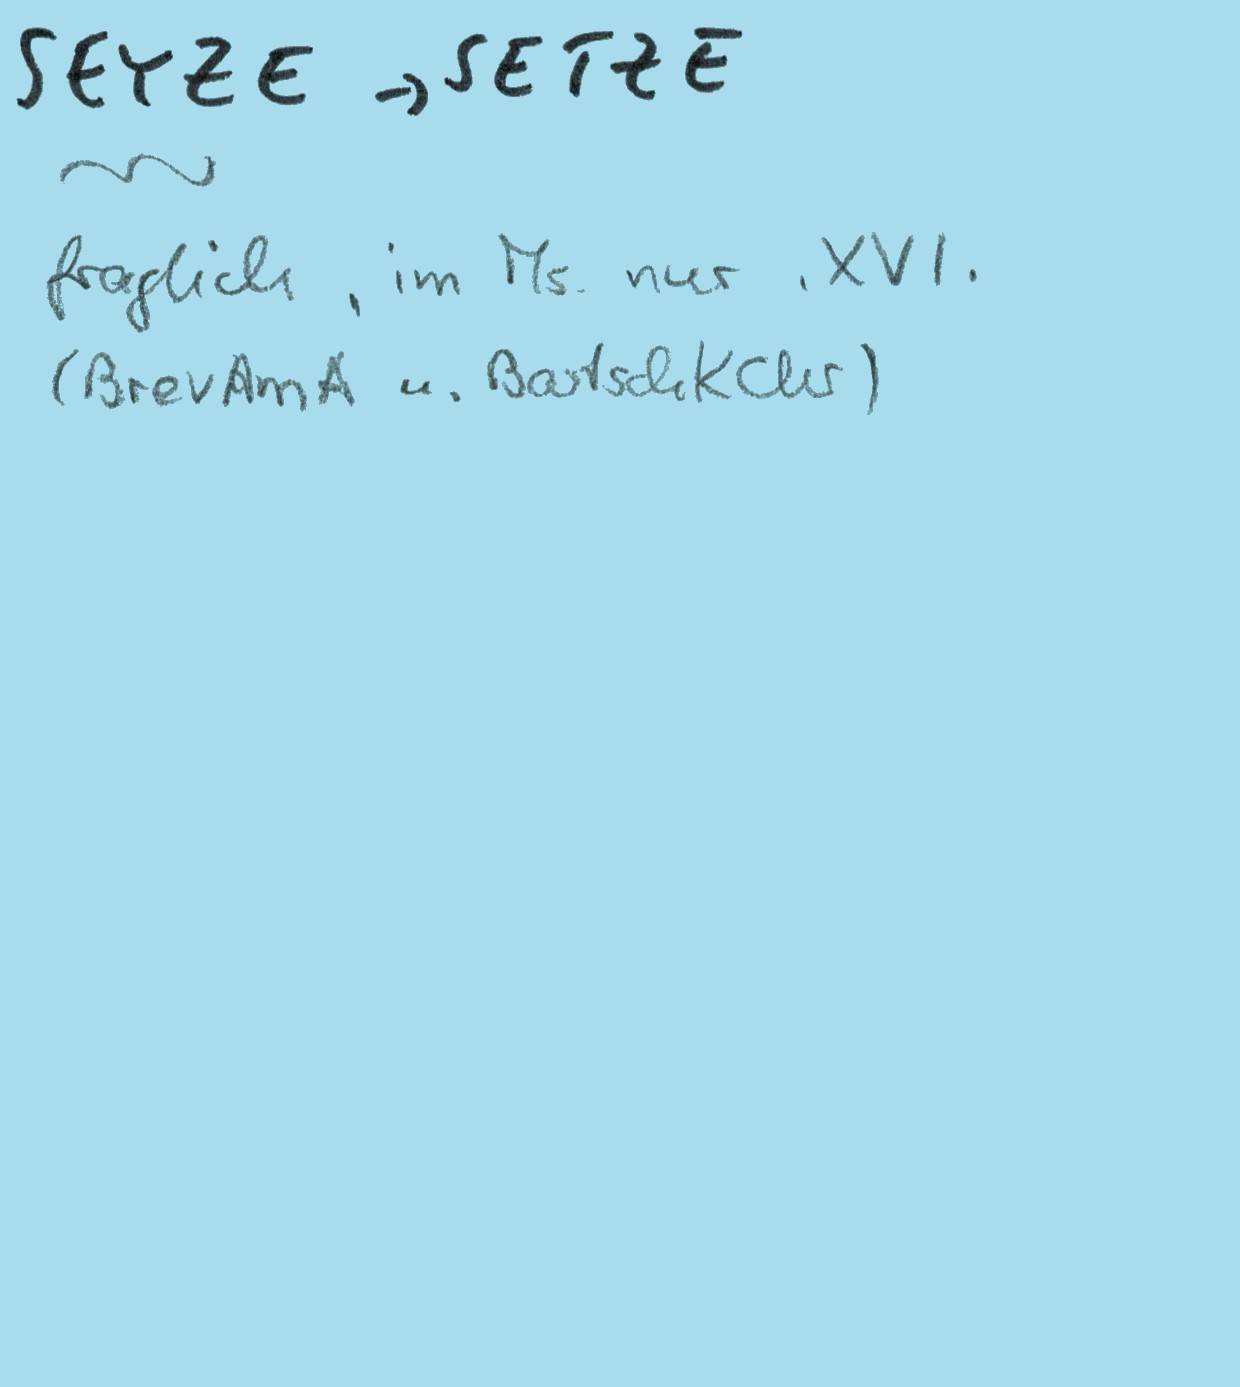 SEYZE → SETZE
fraglich, im Ms. nur .XVI.
(BrevAmA u. BartschKChr)